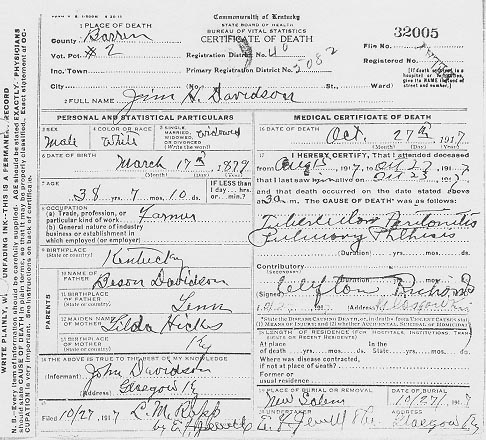 FORM V. S. 1-300M 6 20-11
Commonwealth of Kentucky
STATE BOARD OF HEALTH
BUREAU OF VITAL STATISTICS
CERTIFICATE OF DEATH
32005
1 PLACE OF DEATH
County Barren
Vot. Pct # 2
Inc. Town
City
Registration District No. 40
Primary Registration District No. 5082
(No. St., Ward)
File No.
Registered No.
(If death occurred in a hospital or institution, give its NAME instead of street and number.)
2 FULL NAME Jim H. Davidson
PERSONAL AND STATISTICAL PARTICULARS
3 SEX Male
4 COLOR OR RACE White
5 SINGLE, MARRIED, WIDOWED, OR DIVORCED (Write the word) Widowed
6 DATE OF BIRTH March 17th 1879
7 AGE 38 yrs. 7 mos. 10 ds.
IF LESS than 1 day ... hrs. or ... min.?
8 OCCUPATION
(a) Trade, profession, or particular kind of work Farmer
(b) General nature of industry business or establishment in which employed (or employer)
9 BIRTHPLACE (State or country) Kentucky
PARENTS
10 NAME OF FATHER Davidson
11 BIRTHPLACE OF FATHER (State or country) Tenn
12 MAIDEN NAME OF MOTHER Tilda Hicks
13 BIRTHPLACE OF MOTHER (State or country) Ky
14 THE ABOVE IS TRUE TO THE BEST OF MY KNOWLEDGE
(Informant) John Davidson
(Address) Glasgow Ky
15 Filed 10/27, 1917
MEDICAL CERTIFICATE OF DEATH
16 DATE OF DEATH Oct. 27th, 1917
17 I HEREBY CERTIFY, That I attended deceased
from 1917, to Oct 27 1917
that I last saw h alive on 1917
and that death occurred on the date stated above
at m. The CAUSE OF DEATH* was as follows:
Tubercular Peritonitis
Pulmonary Phthisis
(Duration) yrs. mos. ds.
Contributory (SECONDARY)
(Duration) yrs. mos. ds.
(Signed) Clifton Richards
(Address) Glasgow Ky
*State the DISEASE CAUSING DEATH, or, in deaths from VIOLENT CAUSES, state (1) MEANS OF INJURY; and (2) whether ACCIDENTAL, SUICIDAL or HOMICIDAL.
18 LENGTH OF RESIDENCE (FOR HOSPITALS, INSTITUTIONS, TRANSIENTS OR RECENT RESIDENTS)
At place of death yrs. mos. ds. In the State yrs. mos. ds.
Where was disease contracted, if not at place of death?
Former or usual residence
19 PLACE OF BURIAL OR REMOVAL New Salem
DATE OF BURIAL 10/27, 1917
20 UNDERTAKER
ADDRESS Glasgow Ky
WRITE PLAINLY, WITH UNFADING INK--THIS IS A PERMANENT RECORD
N. B.--Every item of information should be carefully supplied. AGE should be stated EXACTLY. PHYSICIANS should state CAUSE OF DEATH in plain terms, so that it may be properly classified. Exact statement of OCCUPATION is very important. See instructions on back of certificate.